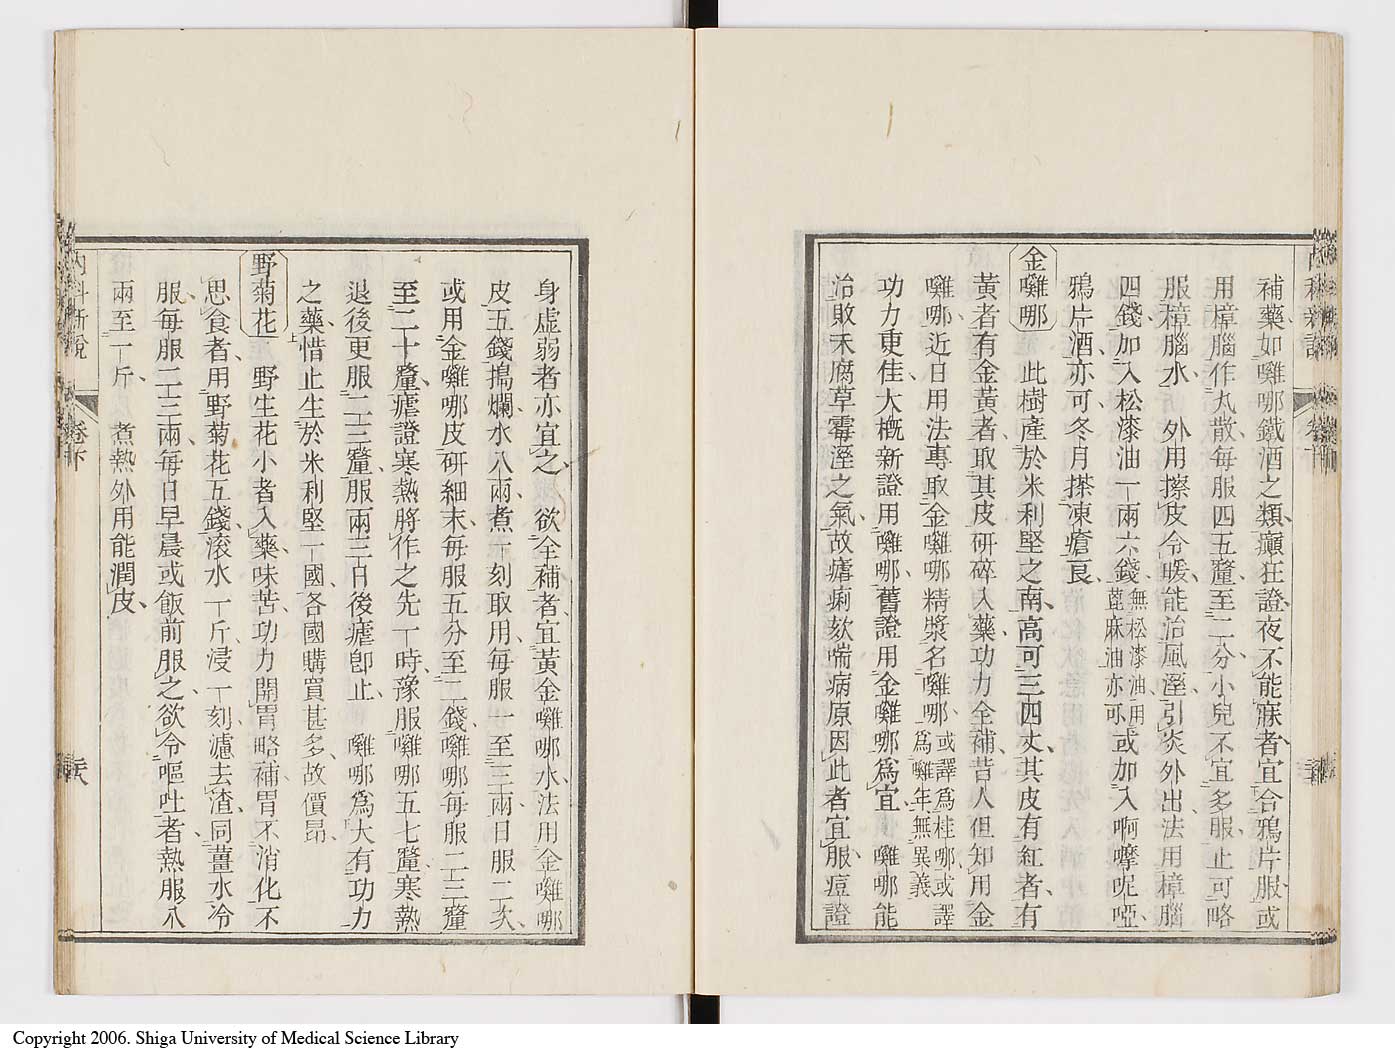 補藥如囄哪鐵酒之類癲狂證夜不能寐者宜合鴉片服或
用樟腦作丸散每服四五釐至二分小兒不宜多服止可略
服樟腦水　外用擦皮令暖能治風溼引炎外出法用樟腦
四錢加入松漆油一兩六錢無松漆油用蓖麻油亦可或加入啊嚤呢啞
鴉片酒亦可冬月搽凍瘡良
金囄哪　此樹產於米利堅之南高可三四丈其皮有紅者有
黃者有金黃者取其皮研碎入藥功力全補昔人但知用金
囄哪近日用法專取金囄哪精漿名囄哪或譯為桂哪或譯為囄年無異義
功力更佳大概新證用囄哪舊證用金囄哪為宜　囄哪能
治敗禾腐草霉溼之氣故瘧痢欬喘病原因此者宜服痘證
內科新說
卷下
身虛弱者亦宜之欲全補者宜黃金囄哪水法用金囄哪
皮五錢搗爛水八兩煮一刻取用每服一至三兩日服二次
或用金囄哪皮研細末每服五分至二錢囄哪每服二三釐
至二十釐瘧證寒熱將作之先一時豫服囄哪五七釐寒熱
退後更服二三釐服兩三日後瘧即止　囄哪為大有功力
之藥惜止生於米利堅一國各國購買甚多故價昂
野菊花　野生花小者入藥味苦功力開胃略補胃不消化不
思食者用野菊花五錢滾水一斤浸一刻濾去渣同薑水冷
服每服二三兩每日早晨或飯前服之欲令嘔吐者熱服八
兩至一斤　煮熱外用能潤皮
內科新說
卷下